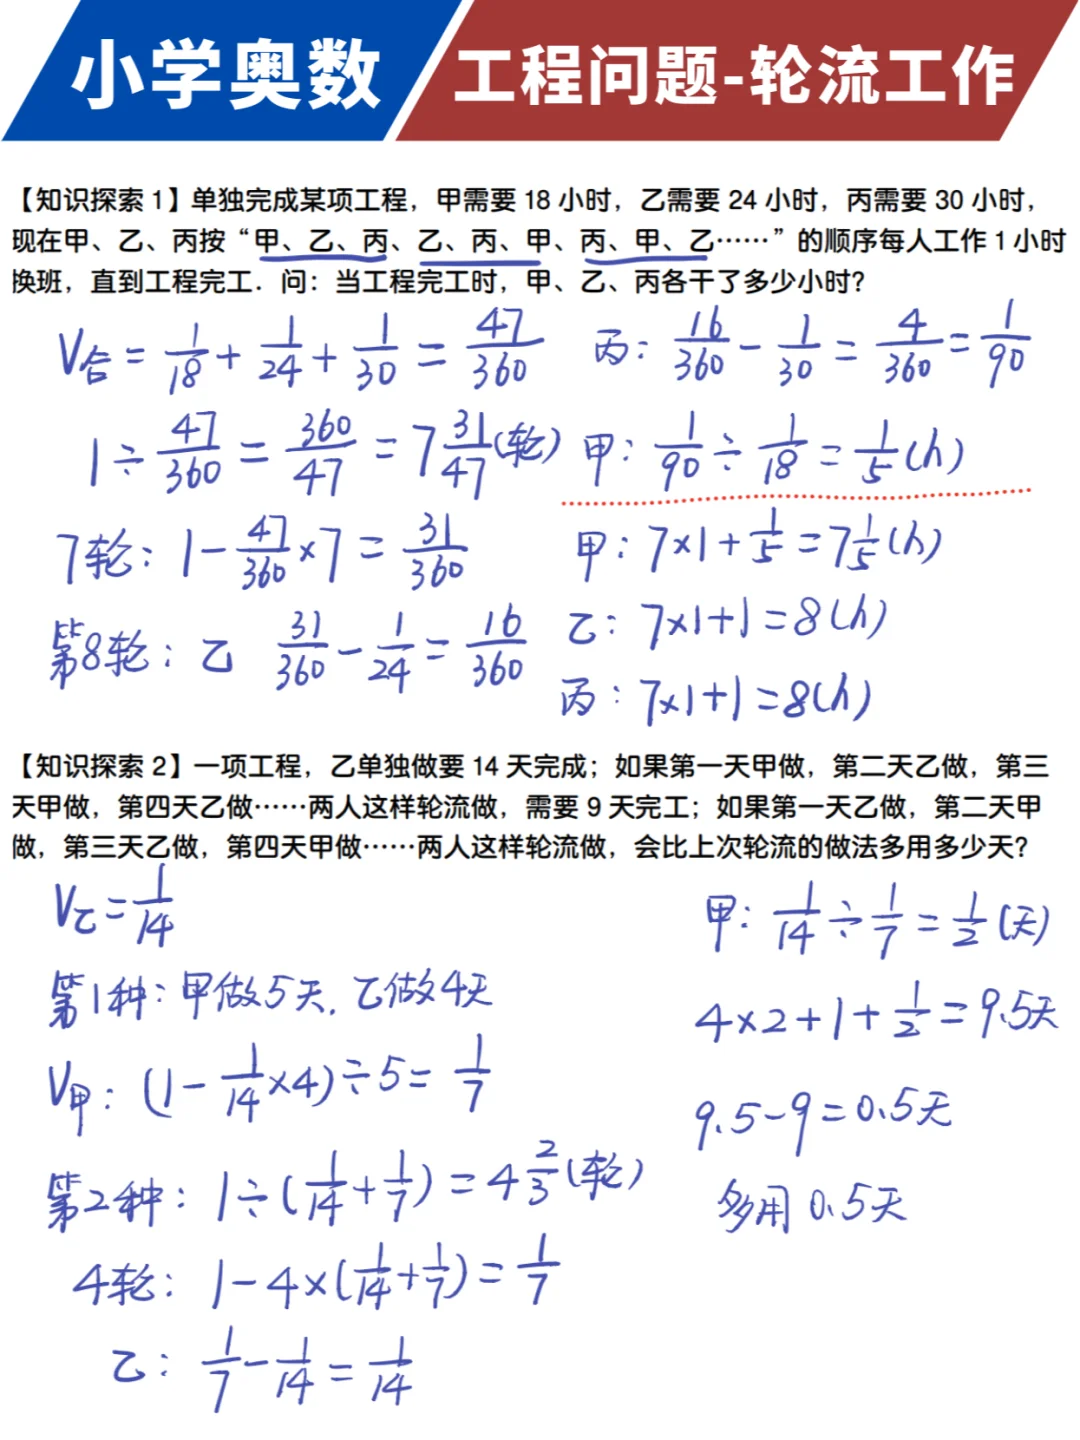 小学奥数 工程问题-轮流工作
【知识探索 1】单独完成某项工程，甲需要 18 小时，乙需要 24 小时，丙需要 30 小时，
现在甲、乙、丙按“甲、乙、丙、乙、丙、甲、丙、甲、乙……”的顺序每人工作 1 小时
换班，直到工程完工．问：当工程完工时，甲、乙、丙各干了多少小时？
V合 = 1/18 + 1/24 + 1/30 = 47/360
1 ÷ 47/360 = 360/47 = 7 31/47 (轮)
7轮: 1 - 47/360 × 7 = 31/360
第8轮: 乙 31/360 - 1/24 = 16/360
丙: 16/360 - 1/30 = 4/360 = 1/90
甲: 1/90 ÷ 1/18 = 1/5 (h)
甲: 7×1 + 1/5 = 7 1/5 (h)
乙: 7×1+1 = 8(h)
丙: 7×1+1 = 8(h)
【知识探索 2】一项工程，乙单独做要 14 天完成；如果第一天甲做，第二天乙做，第三
天甲做，第四天乙做……两人这样轮流做，需要 9 天完工；如果第一天乙做，第二天甲
做，第三天乙做，第四天甲做……两人这样轮流做，会比上次轮流的做法多用多少天？
V乙 = 1/14
第1种: 甲做5天. 乙做4天
V甲: (1 - 1/14 × 4) ÷ 5 = 1/7
第2种: 1 ÷ (1/14 + 1/7) = 4 2/3 (轮)
4轮: 1 - 4 × (1/14 + 1/7) = 1/7
乙: 1/7 - 1/14 = 1/14
甲: 1/14 ÷ 1/7 = 1/2 (天)
4×2+1+1/2 = 9.5天
9.5-9 = 0.5天
多用 0.5天